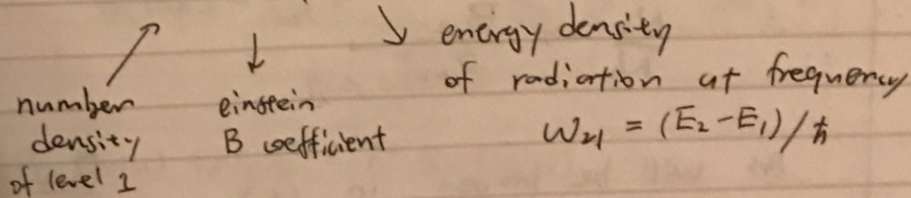 energy density
of radiation at frequency
ω₂₁ = (E₂ - E₁) / ħ
number
density
of level 1
einstein
B coefficient